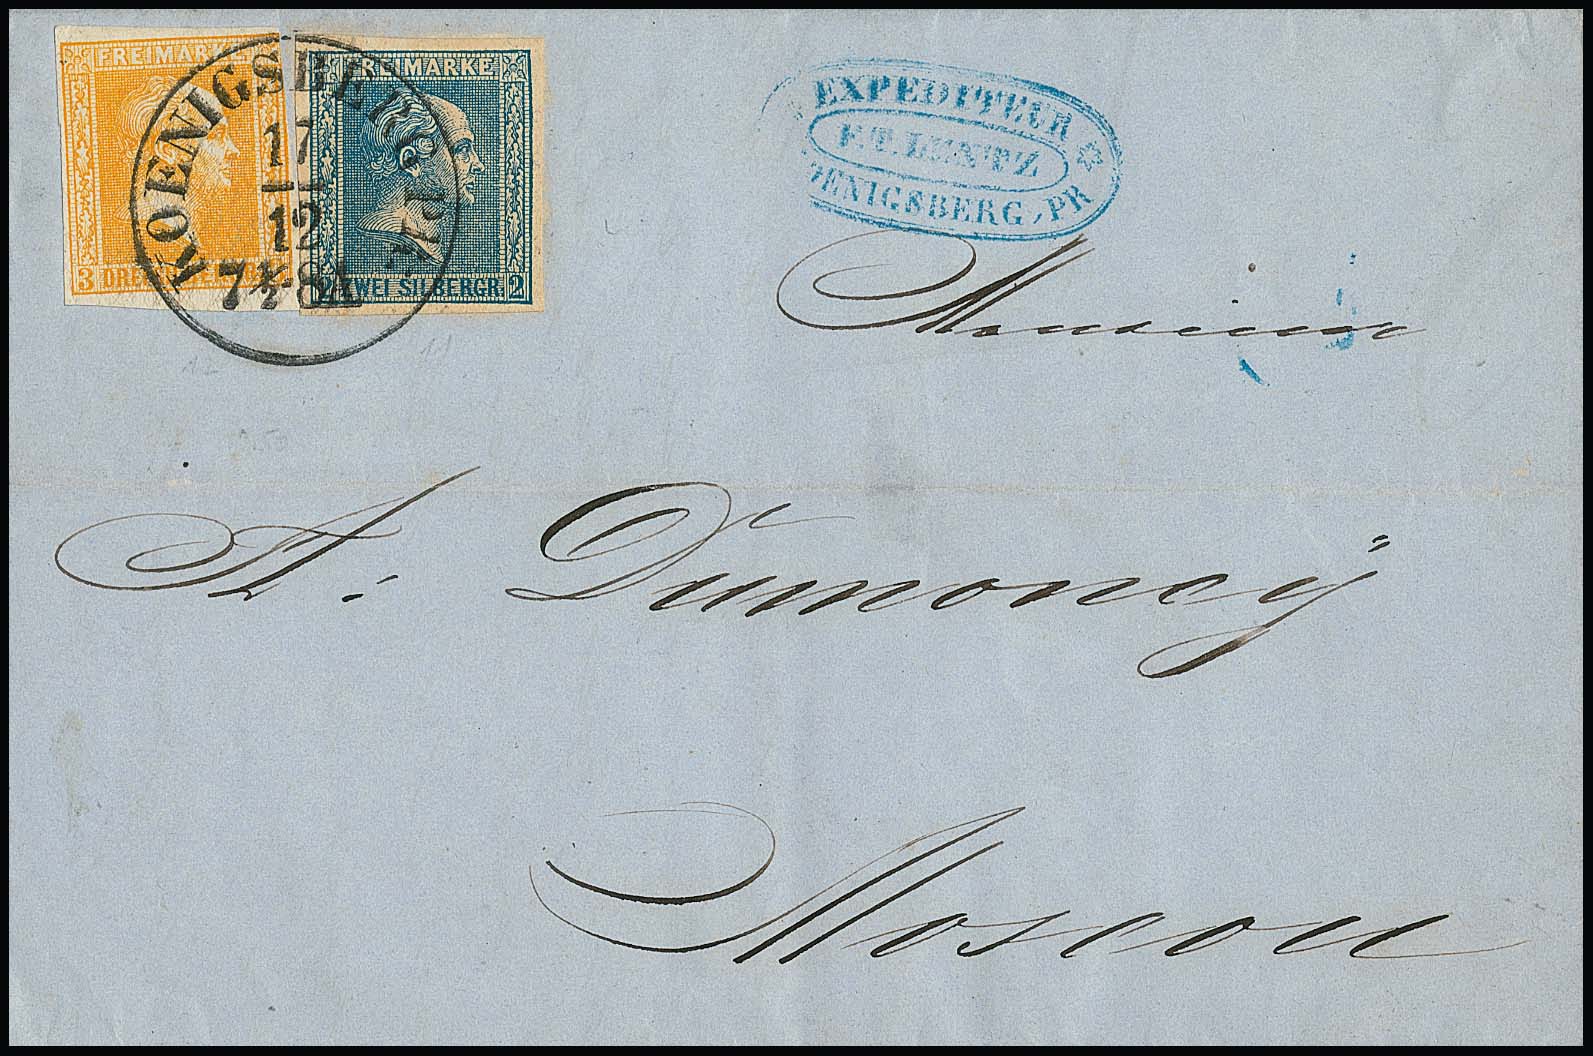 FREIMARKE
3 DREI
FREIMARKE
2 ZWEI SILBERGR. 2
KOENIGSBERG. PR.
17
12
7½-8A
EXPEDITEUR
F. T. LENTZ
OENIGSBERG, PR
Monsieur
A: Dumoncÿ
Moscou